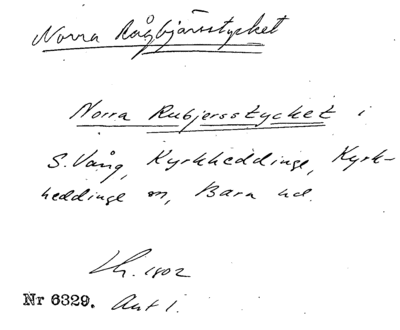 Norra Rågbjärsstycket
Norra Rubjersstycket i
S. Vång, Kyrkheddinge, Kyrk-
heddinge sn, Bara hd.
Lh. 1802
Nr 6329. Akt 1.